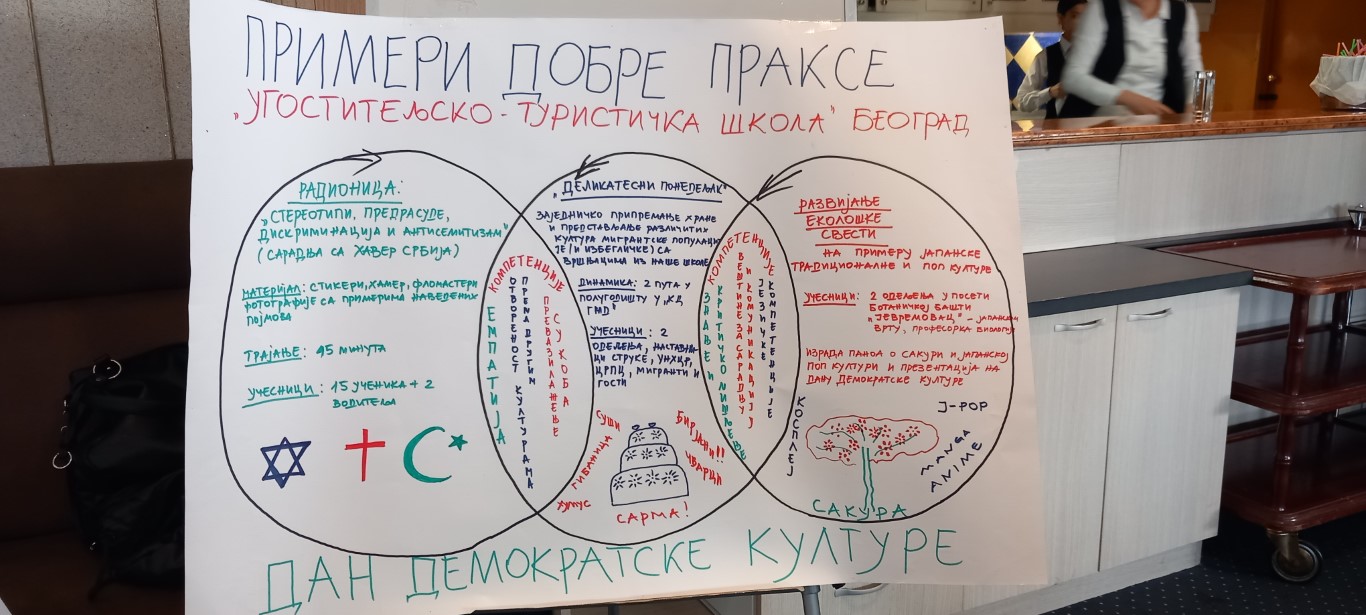 ПРИМЕРИ ДОБРЕ ПРАКСЕ
„УГОСТИТЕЉСКО - ТУРИСТИЧКА ШКОЛА" БЕОГРАД
РАДИОНИЦА:
„СТЕРЕОТИПИ, ПРЕДРАСУДЕ,
ДИСКРИМИНАЦИЈА И АНТИСЕМИТИЗАМ"
(САРАДЊА СА ХАВЕР СРБИЈА)
МАТЕРИЈАЛ: СТИКЕРИ, ХАМЕР, ФЛОМАСТЕРИ
ФОТОГРАФИЈЕ СА ПРИМЕРИМА НАВЕДЕНИХ
ПОЈМОВА
ТРАЈАЊЕ: 45 МИНУТА
УЧЕСНИЦИ: 15 УЧЕНИКА + 2
ВОДИТЕЉА
КОМПЕТЕНЦИЈЕ
ЕМПАТИЈА
ОТВОРЕНОСТ КУЛТУРАМА
ПРЕМА ДРУГИМ
ПРЕВАЗИЛАЖЕЊЕ
СУКОБА
„ДЕЛИКАТЕСНИ ПОНЕДЕЉАК"
ЗАЈЕДНИЧКО ПРИПРЕМАЊЕ ХРАНЕ
И ПРЕДСТАВЉАЊЕ РАЗЛИЧИТИХ
КУЛТУРА МИГРАНТСКЕ ПОПУЛАЦИ
ЈЕ (И ИЗБЕГЛИЧКЕ) СА
ВРШЊАЦИМА ИЗ НАШЕ ШКОЛЕ
ДИНАМИКА: 2 ПУТА У
ПОЛУГОДИШТУ У „КЦ
ГМД"
УЧЕСНИЦИ: 2
ОДЕЉЕЊА, НАСТАВНИ
ЦИ СТРУКЕ, УНХЦР,
ЦРПЦ, МИГРАНТИ И
ГОСТИ
СУШИ
ГИБАНИЦА
ХУМУС
САРМА!
БИРЈАНИ!!
ЧВАРЦИ
КОМПЕТЕНЦИЈЕ
ЗНАЊЕ И
КРИТИЧКО МИШЉЕЊЕ
ВЕШТИНЕ ЗА САРАДЊУ
И КОМУНИКАЦИЈУ
ЈЕЗИЧКЕ
КОМПЕТЕНЦИЈЕ
РАЗВИЈАЊЕ
ЕКОЛОШКЕ
СВЕСТИ
НА ПРИМЕРУ ЈАПАНСКЕ
ТРАДИЦИОНАЛНЕ И ПОП КУЛТУРЕ
УЧЕСНИЦИ: 2 ОДЕЉЕЊА У ПОСЕТИ
БОТАНИЧКОЈ БАШТИ
„ЈЕВРЕМОВАЦ" - ЈАПАНСКОМ
ВРТУ, ПРОФЕСОРКА БИОЛОГИЈЕ
ИЗРАДА ПАНОА О САКУРИ И ЈАПАНСКОЈ
ПОП КУЛТУРИ И ПРЕЗЕНТАЦИЈА НА
ДАНУ ДЕМОКРАТСКЕ КУЛТУРЕ
КОСПЛЕЈ
J-POP
МАНГА
АНИМЕ
САКУРА
ДАН ДЕМОКРАТСКЕ КУЛТУРЕ